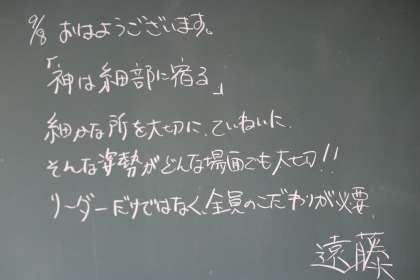 9/8 おはようございます。
「神は細部に宿る」
細かな所を大切に、ていねいに、
そんな姿勢がどんな場面でも大切!!
リーダーだけではなく、全員のこだわりが必要
遠藤